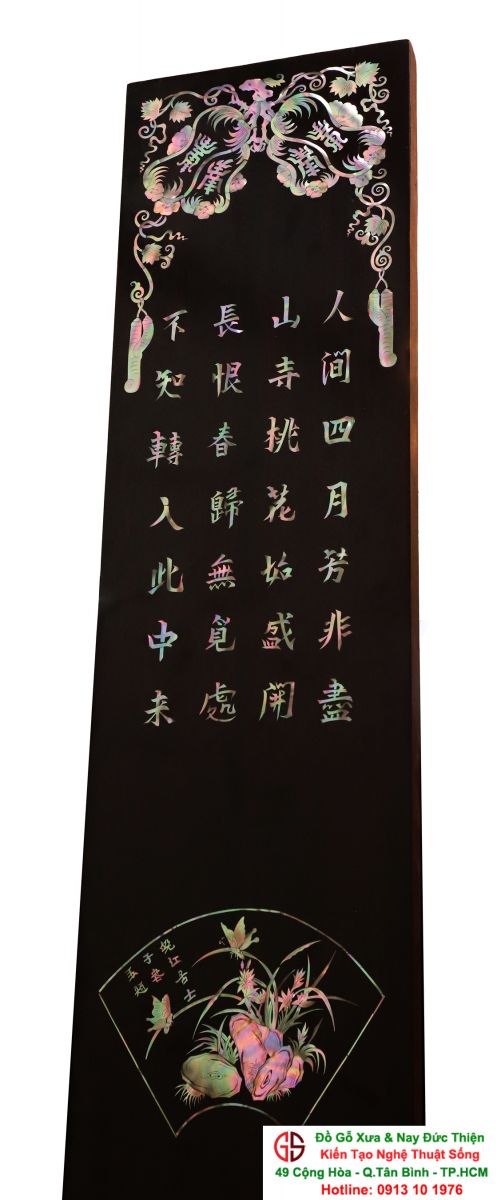 人澗四月芳非盡
山寺桃花始盛開
長恨春歸無覓處
不知轉入此中来
GS
Đồ Gỗ Xưa & Nay Đức Thiện
Kiến Tạo Nghệ Thuật Sống
49 Cộng Hòa - Q.Tân Bình - TP.HCM
Hotline: 0913 10 1976